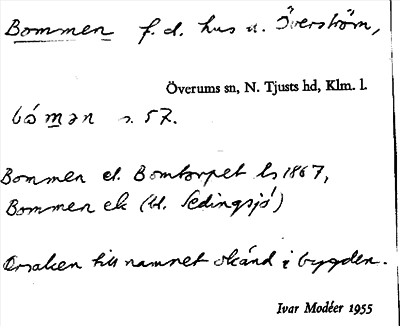 Bommen f. d. hus u. Överström,
Överums sn, N. Tjusts hd, Klm. l.
bómən s. 57.
Bommen el. Bomtorpet ls 1867,
Bommen ek (bl. Sedingsjö)
Orsaken till namnet okänd i bygden.
Ivar Modéer 1955